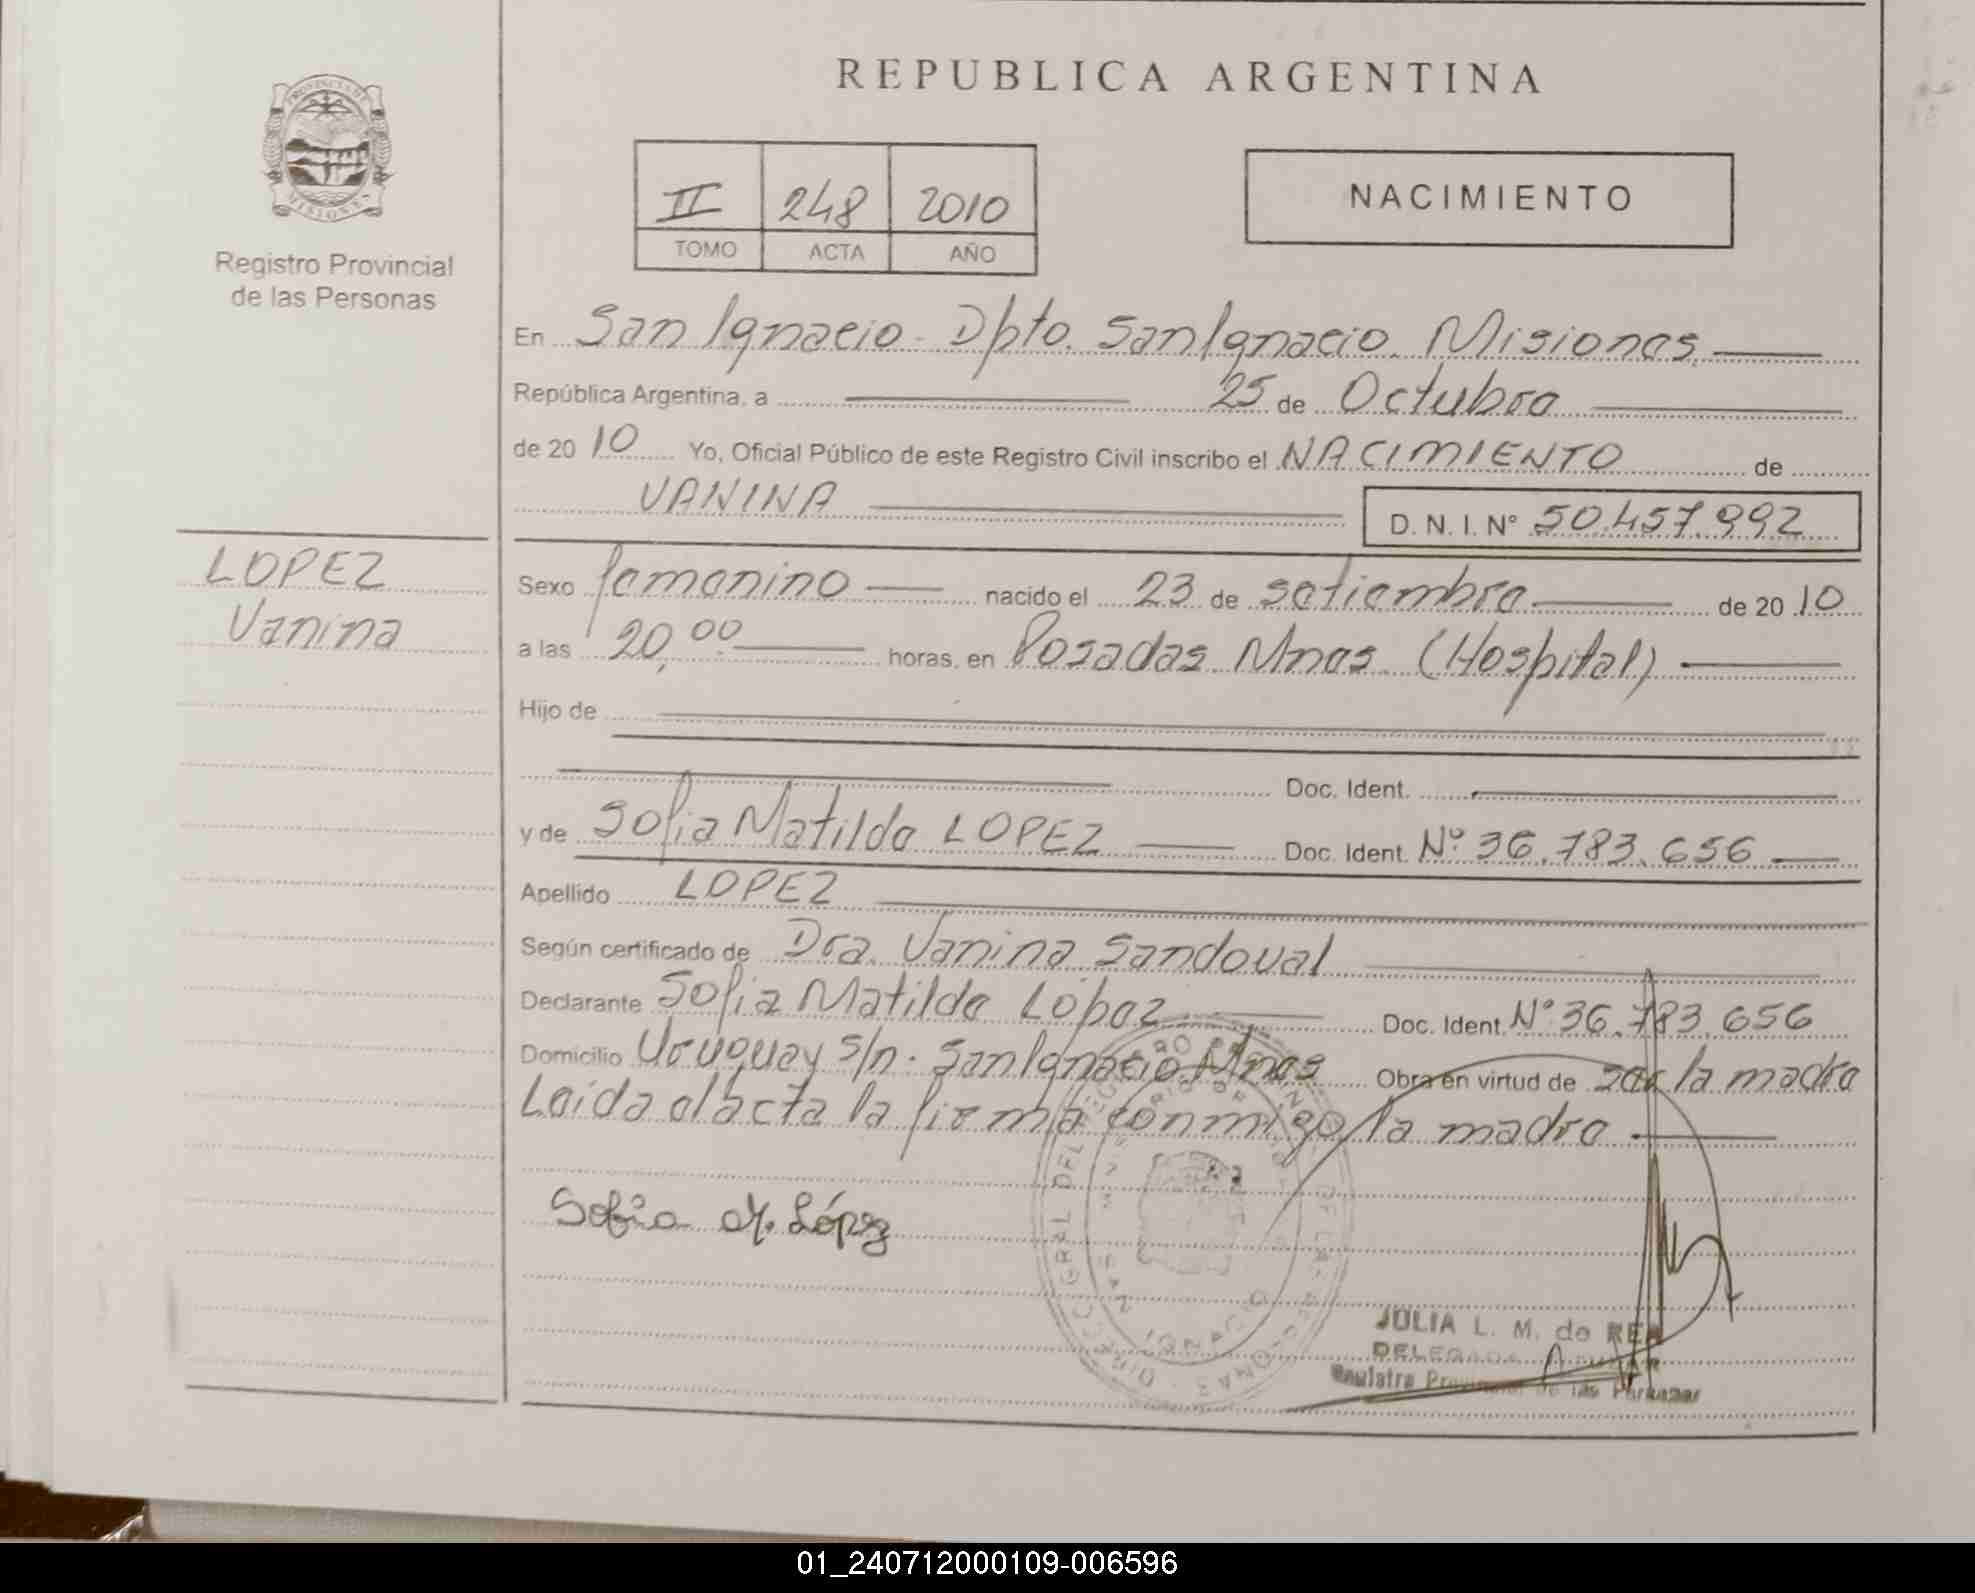 REPUBLICA ARGENTINA
PROVINCIA DE
MISIONES
Registro Provincial
de las Personas
II 248 2010
TOMO ACTA AÑO
NACIMIENTO
En San Ignacio - Dpto. San Ignacio. Misiones.
República Argentina, a 25 de Octubre
de 2010 Yo, Oficial Público de este Registro Civil inscribo el NACIMIENTO de
VANINA D. N. I. N° 50.457.992
LOPEZ
Vanina
Sexo femenino nacido el 23 de setiembre de 2010
a las 20,00. horas, en Posadas Mnes. (Hospital)
Hijo de
Doc. Ident.
y de Sofia Matilde LOPEZ Doc. Ident. N° 36.783.656
Apellido LOPEZ
Según certificado de Dra. Vanina Sandoval
Declarante Sofia Matilde López Doc. Ident. N° 36.783.656
Domicilio Uruguay s/n. San Ignacio Mnes Obra en virtud de ser la madre
Leida el acta la firma conmigo la madre
Sofia M. López
SAN IGNACIO
JULIA L. M. de
DELEGADA
Provincial de las Personas
01_240712000109-006596